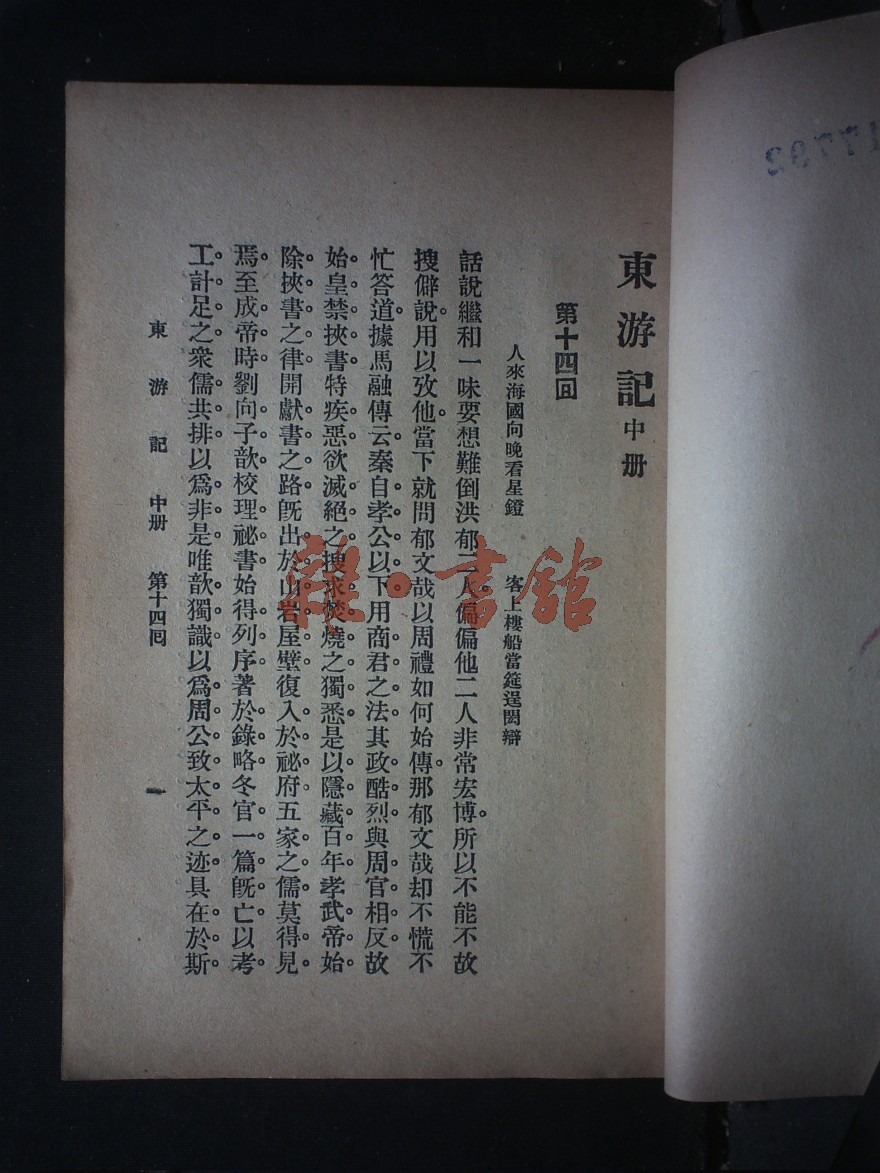 東游記 中册
第十四回
人來海國向晚看星鐙　客上樓船當筵逞閎辯
話說繼和一味要想難倒洪郁二人偏偏他二人非常宏博。所以不能不故
搜僻說。用以攷他。當下就問郁文哉以周禮如何始傳。那郁文哉却不慌不
忙答道。據馬融傳云。秦自孝公以下。用商君之法。其政酷烈。與周官相反。故
始皇禁挾書。特疾惡。欲滅絕之。搜求焚燒之獨悉。是以隱藏百年。孝武帝始
除挾書之律。開獻書之路。既出於山岩屋壁。復入於祕府。五家之儒。莫得見
焉。至成帝時。劉向子歆。校理祕書。始得列序。著於錄略。冬官一篇旣亡。以考
工計足之。衆儒共排。以爲非是。唯歆獨識。以爲周公致太平之迹。具在於斯
東游記 中册 第十四囘 一
雜·書館
17792